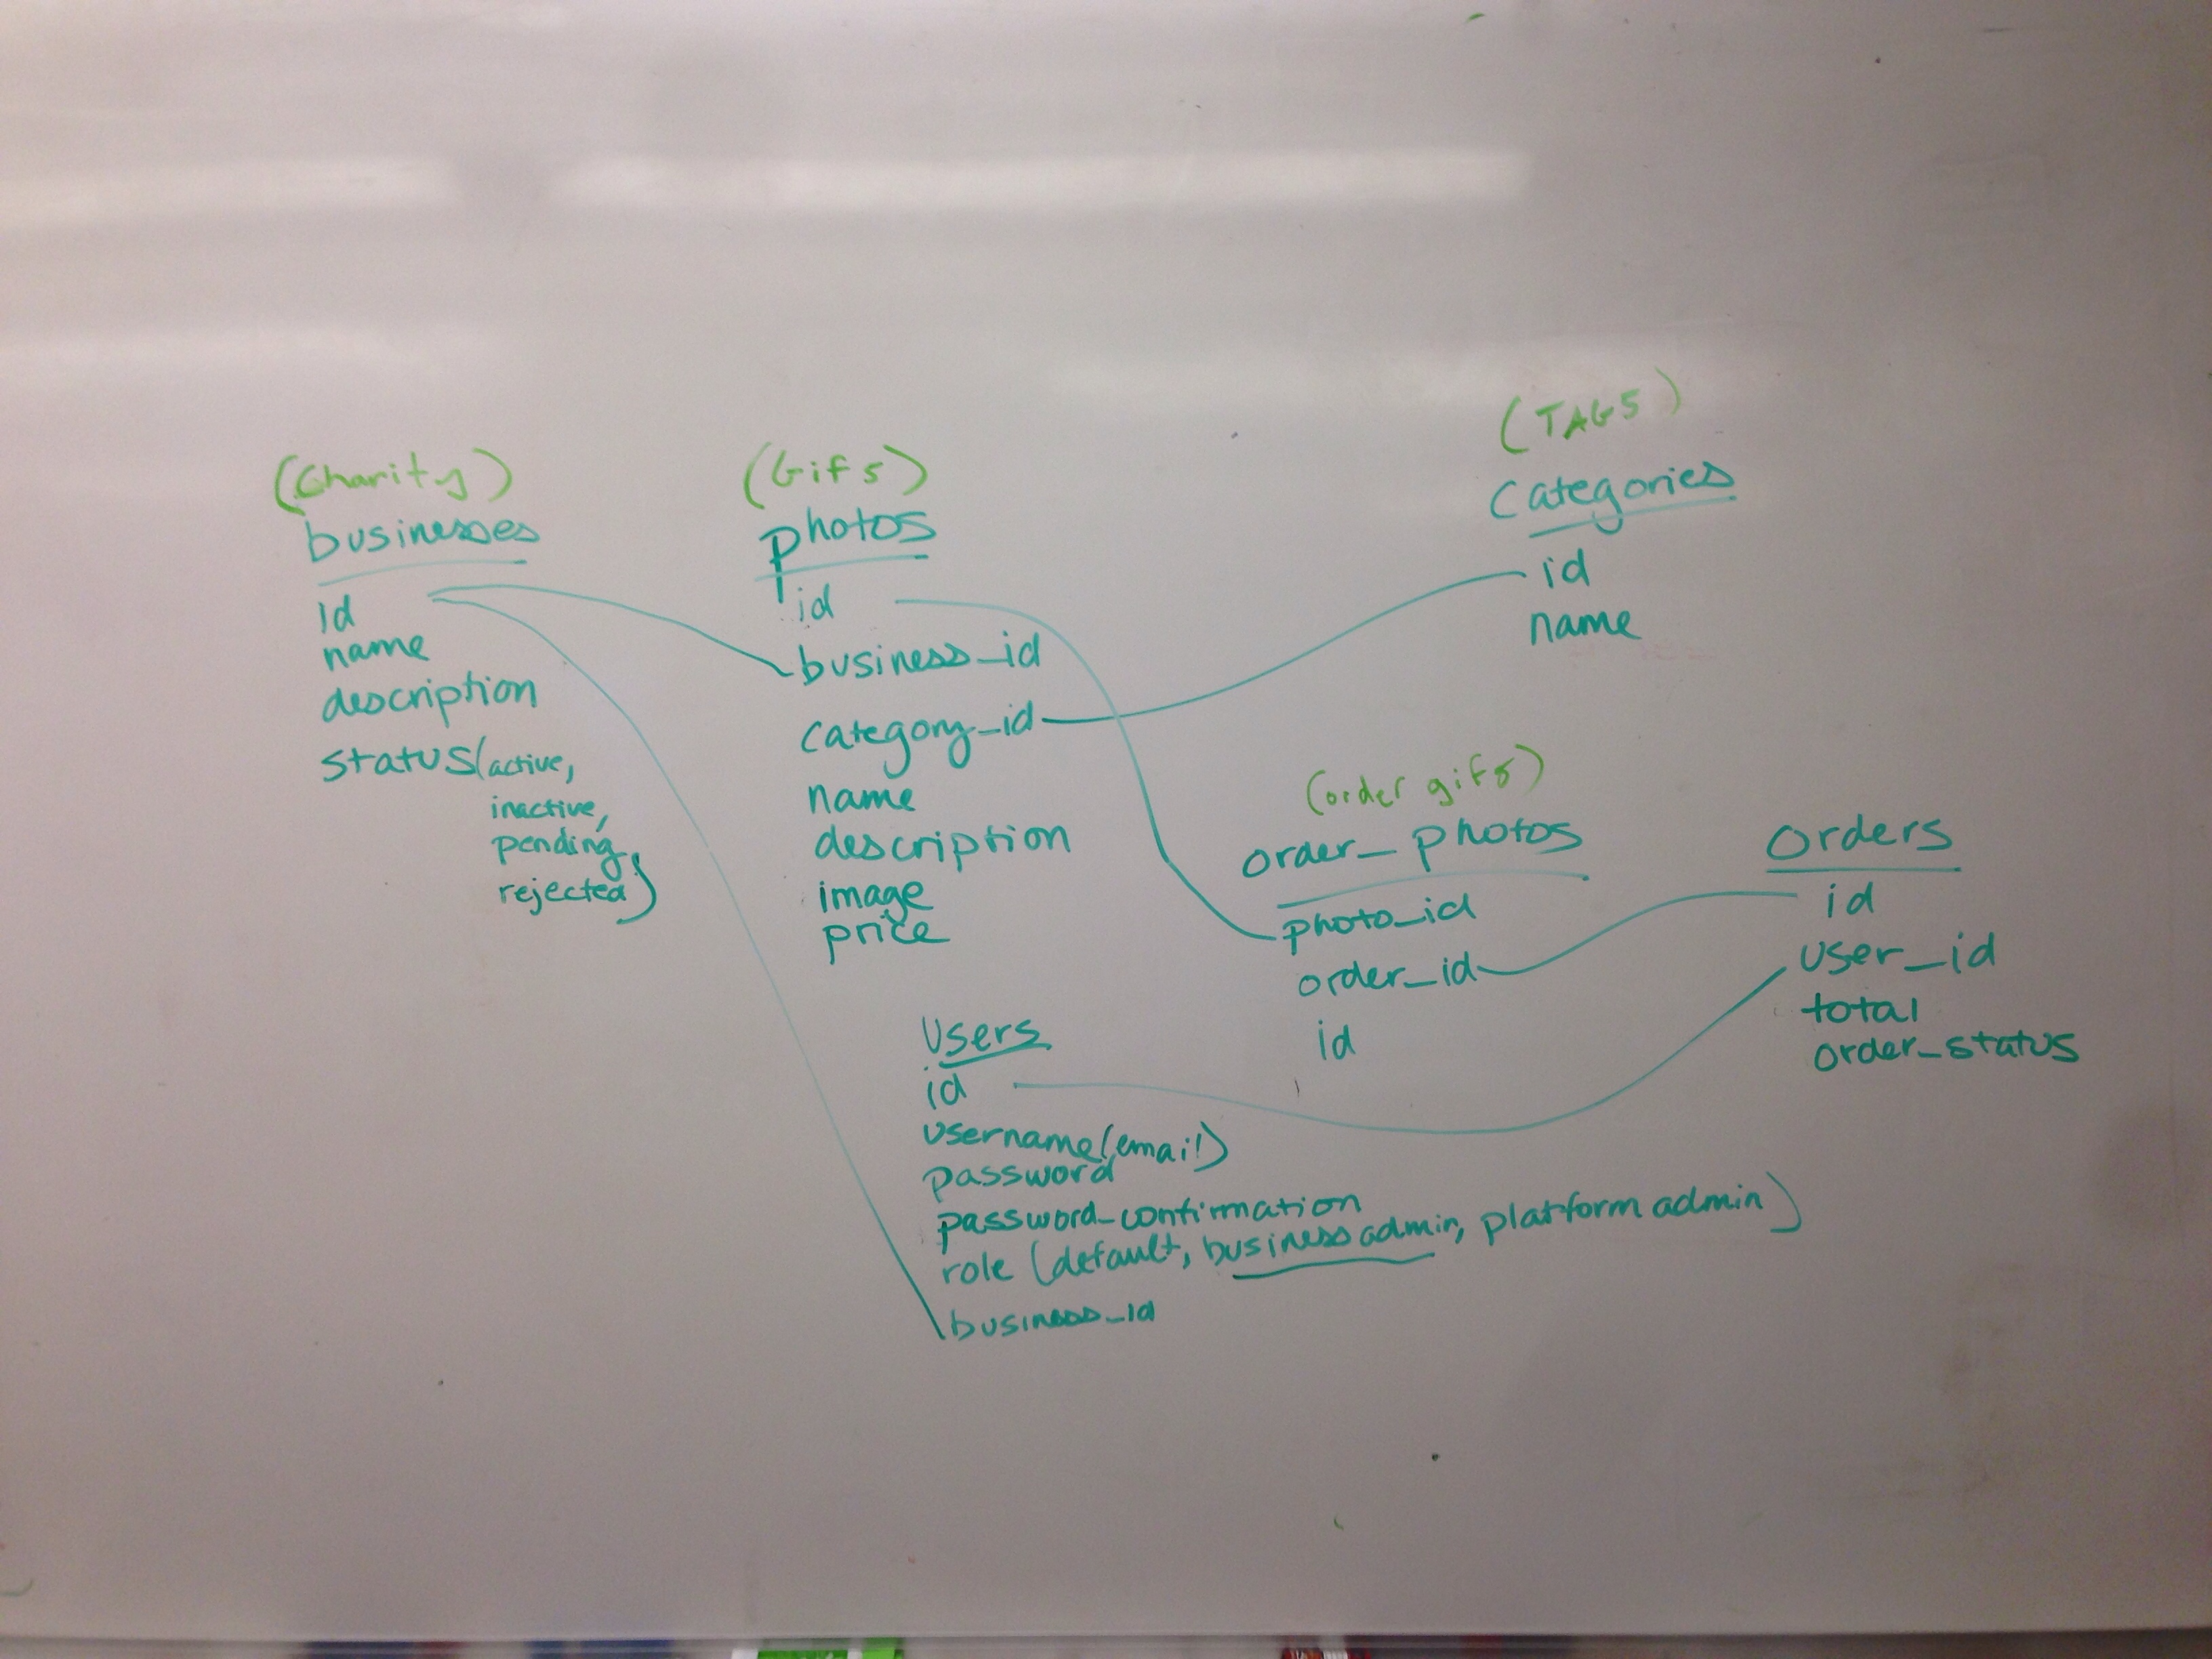 (Charity)
businesses
id
name
description
status (active,
inactive,
pending,
rejected)
(Gifs)
photos
id
business_id
category_id
name
description
image
price
(TAGS)
Categories
id
name
(order gifs)
order_photos
photo_id
order_id
id
Orders
id
user_id
total
order_status
Users
id
username (email)
password
password_confirmation
role (default, business admin, platform admin)
business_id